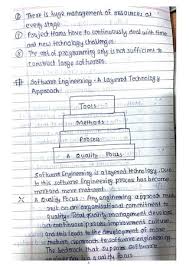 ② There is huge management of resources at
every stage.
③ Project teams have to continuously deal with time
and new technology challenges.
④ The set of programming only is not sufficient to
construct large softwares.
Software Engineering - A Layered Technology
Approach
Tools
Methods
Process
A Quality Focus
Software Engineering is a layered technology. Due
to this software engineering process has become
methods more matured.
A Quality Focus :- Any engineering approach must
rest on an organizational commitment to
Quality. Total quality management develops
continuous process improvement culture
this leads to the development of more
mature approach to software engineering.
The bedrock that supports software
engineering is a quality focus